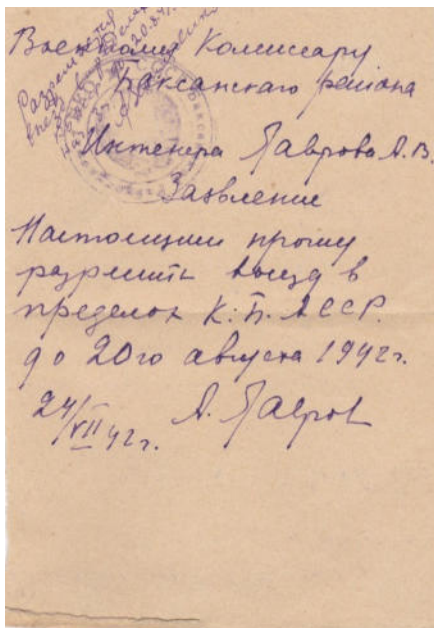 Разрешаю
выезд в пределах
до 20.8.42
Военному Комиссару
Баксанского района
Инженера Лаврова А.В.
Заявление
Настоящим прошу
разрешить выезд в
пределах К.Б.АССР.
до 20го августа 1942г.
24/VII 42г. А. Лавров